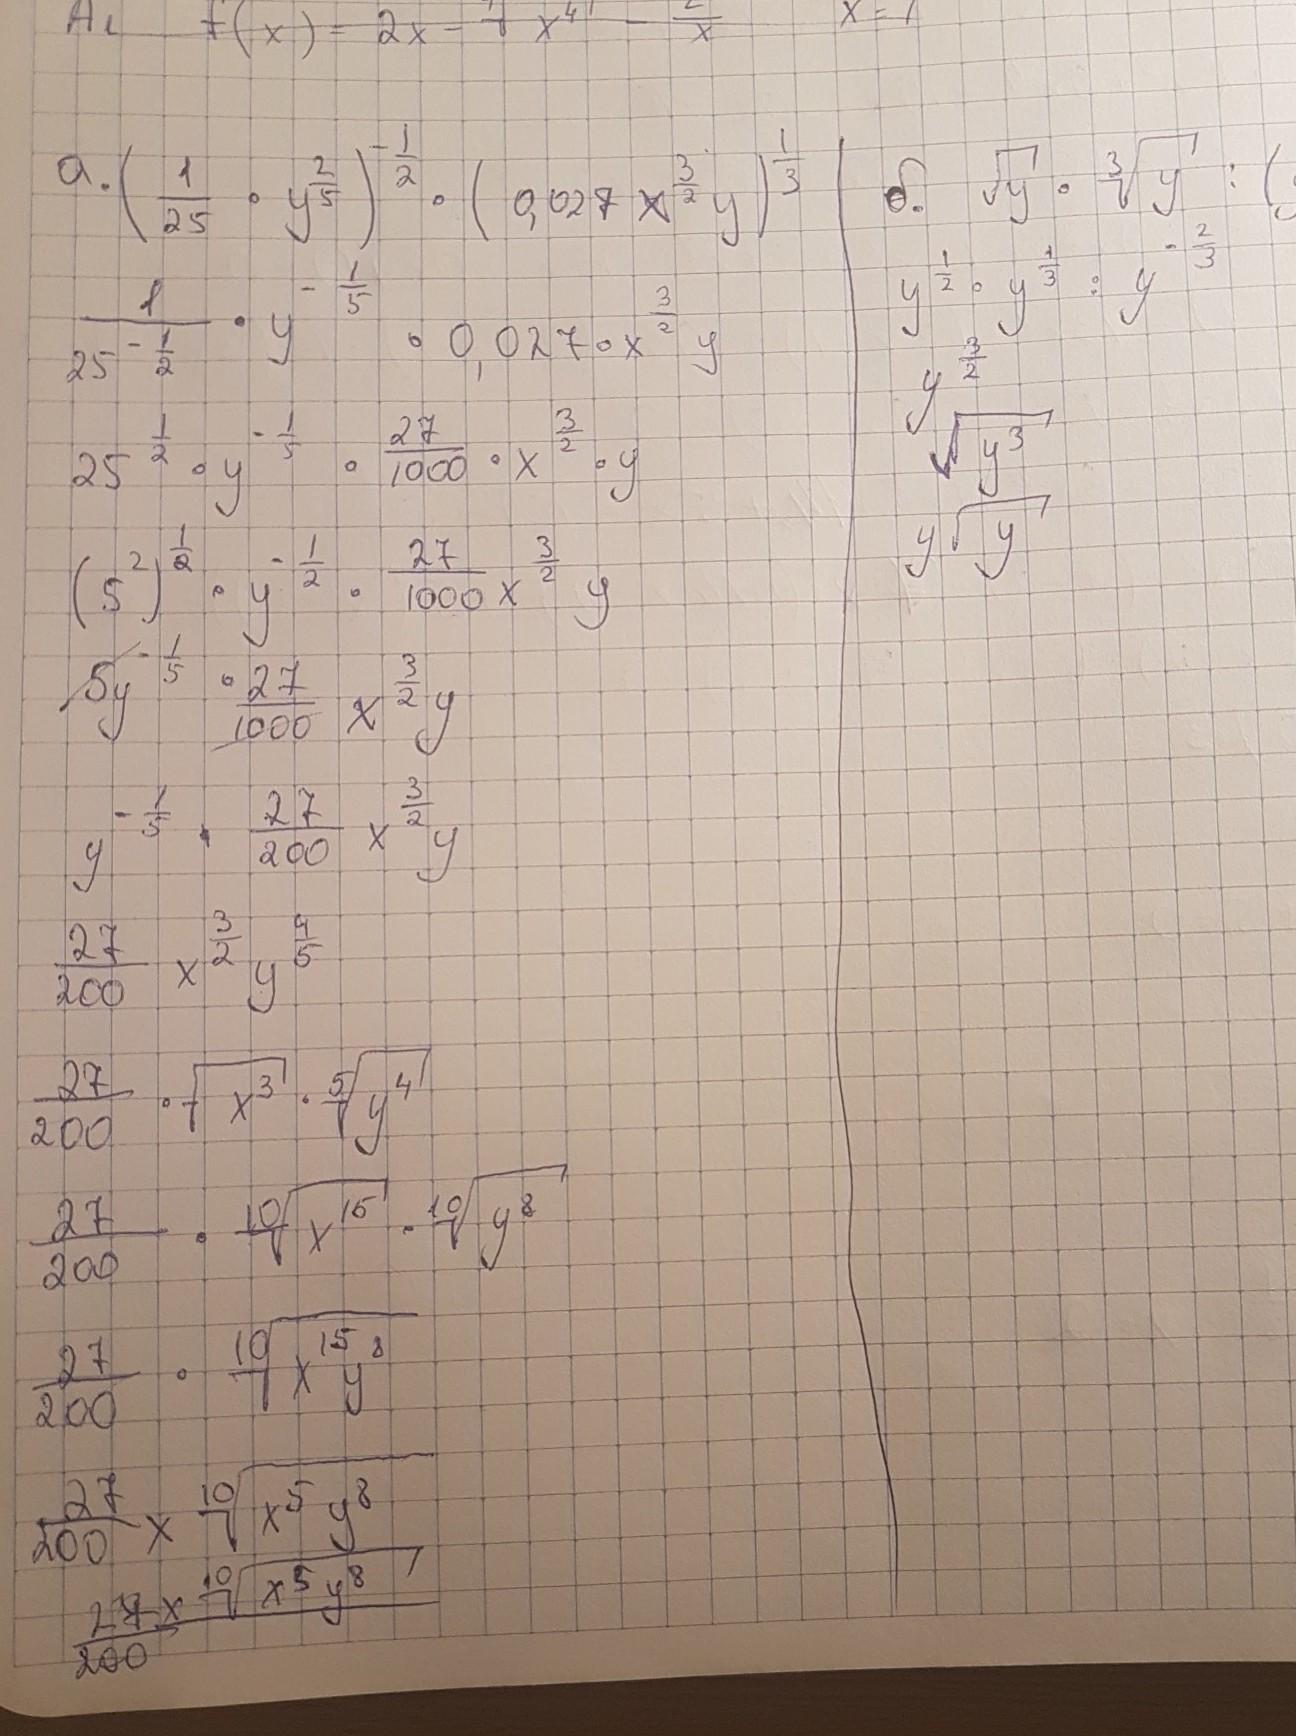 f(x) = 2x - x⁴ - 2/x   x = 1
а. (1/25 · y^(2/5))^(-1/2) · (0,027 x^(3/2) y)^(1/3)
1/25^(-1/2) · y^(-1/5) · 0,027 · x^(3/2) y
25^(1/2) · y^(-1/5) · 27/1000 · x^(3/2) · y
(5²)^(1/2) · y^(-1/2) · 27/1000 x^(3/2) y
5y^(-1/5) · 27/1000 x^(3/2) y
y^(-1/5) · 27/200 x^(3/2) y
27/200 x^(3/2) y^(4/5)
27/200 · √(x³) · ⁵√(y⁴)
27/200 · ¹⁰√(x¹⁵) · ¹⁰√(y⁸)
27/200 · ¹⁰√(x¹⁵y⁸)
27/200 x ¹⁰√(x⁵ y⁸)
27 x ¹⁰√(x⁵ y⁸)/200
б. √y · ³√y : (
y^(1/2) · y^(1/3) : y^(-2/3)
y^(3/2)
√(y³)
y√y